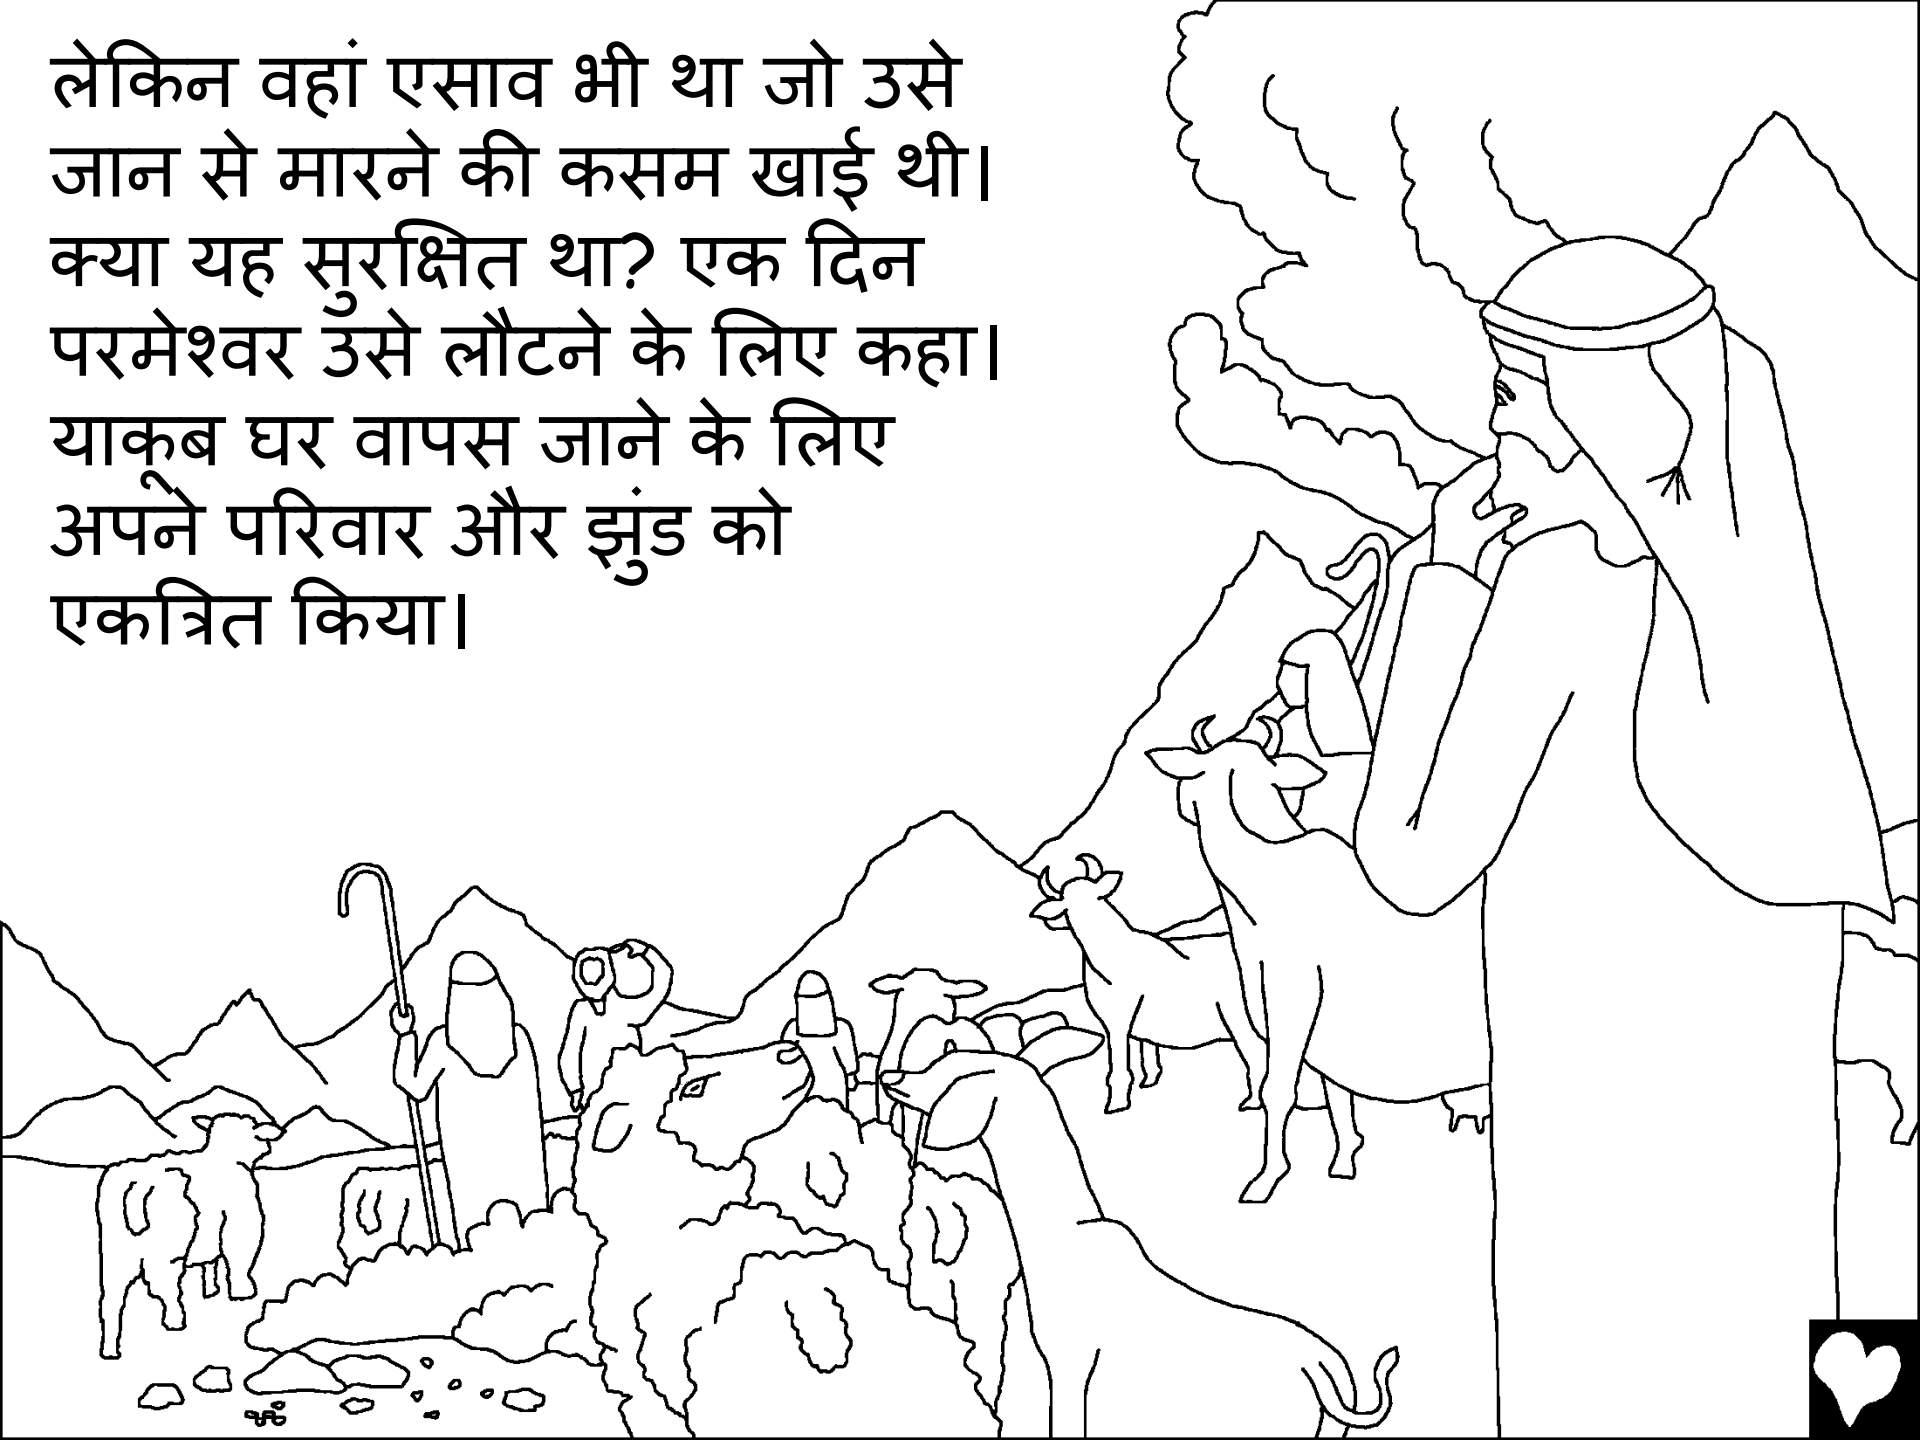 लेकिन वहां एसाव भी था जो उसे
जान से मारने की कसम खाई थी।
क्या यह सुरक्षित था? एक दिन
परमेश्वर उसे लौटने के लिए कहा।
याकूब घर वापस जाने के लिए
अपने परिवार और झुंड को
एकत्रित किया।